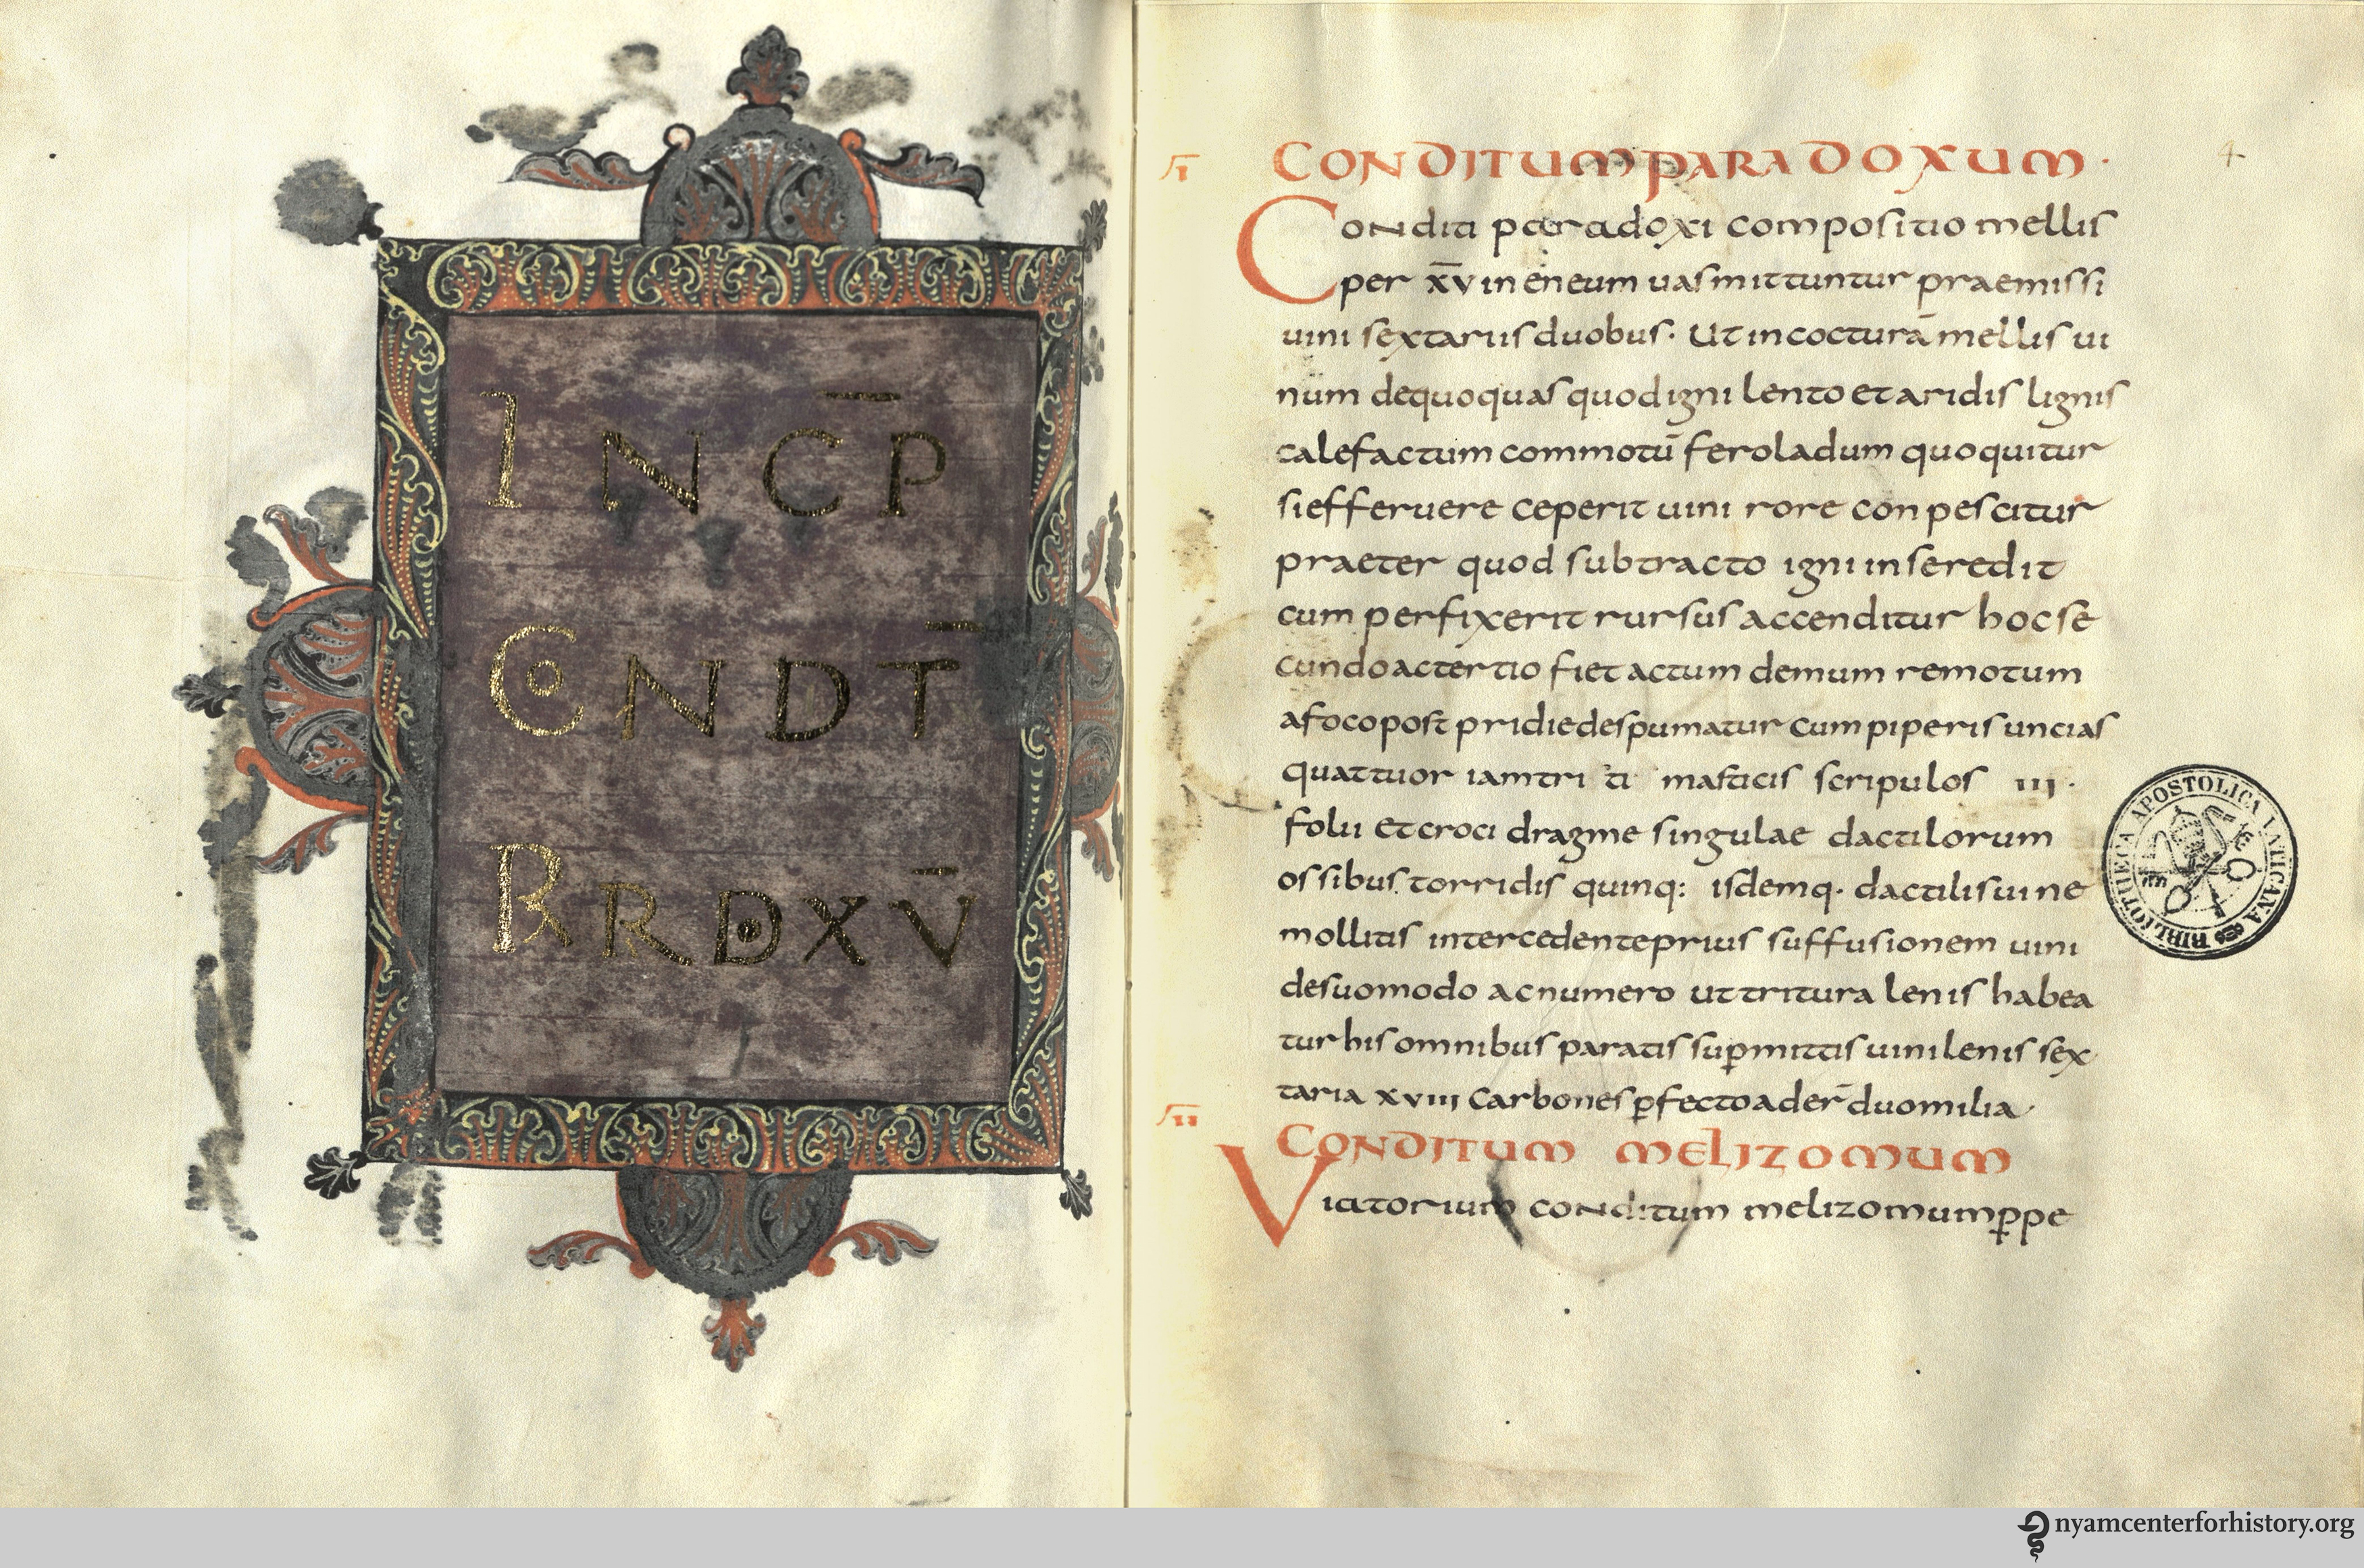 INCP
CoNDT
RRDXV
I
CONDITUM PARADOXUM·
4
Conditi paradoxi compositio mellis
per xv in eneum uas mittuntur praemissi
uini sextariis duobus· Ut in cocturā mellis ui
num dequoquas quod igni lento et aridis lignis
calefactum commotū ferola dum quoquitur
si efferuere ceperit uini rore conpescitur
praeter quod subtracto igni in se redit
cum perfixerit rursus accenditur hoc se
cundo ac tertio fiet ac tum demum remotum
a foco post pridie despumatur cum piperis uncias
quattuor iam triti masticis scripulos iii·
folii et croci dragme singulae dactilorum
ossibus torridis quinq: isdemq· dactilis uine
mollitis intercedente prius suffusionem uini
de suo modo ac numero ut tritura lenis habea
tur his omnibus paratis supmittis uini lenis sex
taria xviii Carbones pfecto ader̄ duo milia·
II
CONDITUM MELIZOMUM
Viatorium conditum melizomum ppe
BIBLIOTHECA APOSTOLICA VATICANA
nyamcenterforhistory.org